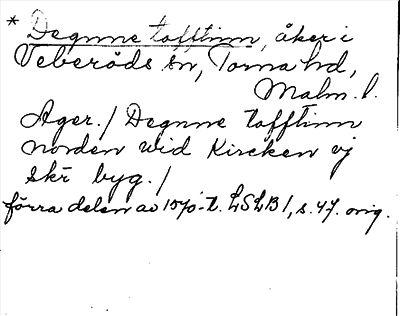 * Degnne tofftinn, åker i
Veberöds sn, Torna hd,
Malm. l.
Ager. / Degnne tofftinn
norden wid Kircken vj
skr byg. /
förra delen av 1570-t. LSLB 1, s. 47. orig.